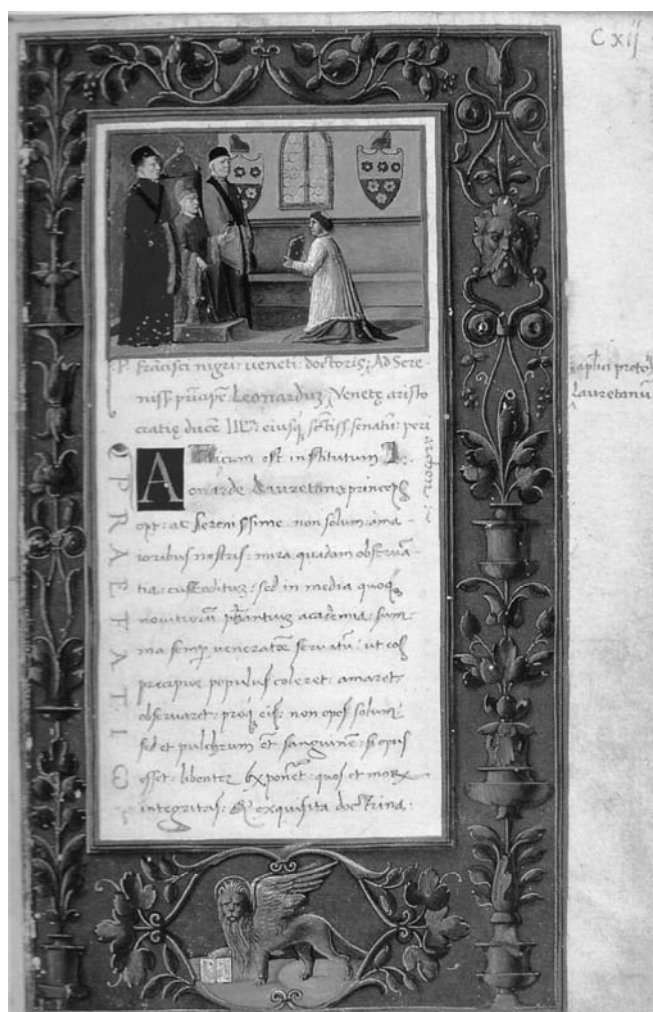 C xij
P. francisci nigri: veneti: doctoris: Ad Sere
niss. prīcipē Leonarduȝ: Venetę aristo
cratię ducē eiusq̨ senatū: peri
archon:
PRAEFATIO
A est institutum
onarde Lauretane princeps
opt: ac serenissime: non solum: a ma
ioribus nostris: mira quadam obserua
tia: custoditus: sed in media quoq̨
academia: sum
ma semp̱ servatū: ut eos
precipue populus coleret: amaret
obseruaret: proq̨ eis: non opes solum
sed et pulchrum et sanguinem: si opus
esset: libenter exponeret: quos et
integritas: & exquisita doctrina:
Lauretanū